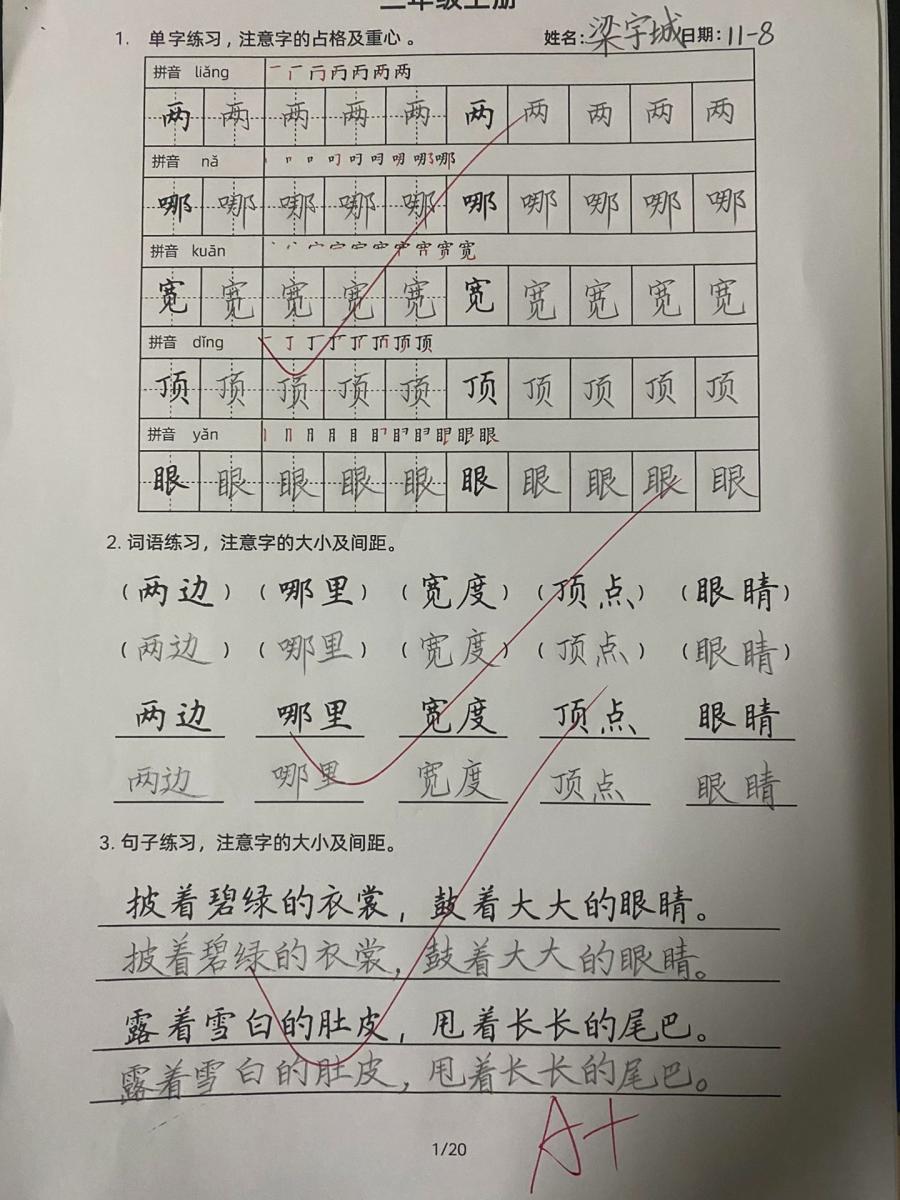 二年级上册
1. 单字练习，注意字的占格及重心。 姓名：梁宇城 日期：11-8
拼音 liǎng 一 厂 冂 丙 丙 两 两
两 两 两 两 两 两 两 两 两 两
拼音 nǎ
哪 哪 哪 哪 哪 哪 哪 哪 哪 哪
拼音 kuān
宽 宽 宽 宽 宽 宽 宽 宽 宽 宽
拼音 dǐng
顶 顶 顶 顶 顶 顶 顶 顶 顶 顶
拼音 yǎn
眼 眼 眼 眼 眼 眼 眼 眼 眼 眼
2. 词语练习，注意字的大小及间距。
（两边）（哪里）（宽度）（顶点）（眼睛）
（两边）（哪里）（宽度）（顶点）（眼睛）
两边 哪里 宽度 顶点 眼睛
两边 哪里 宽度 顶点 眼睛
3. 句子练习，注意字的大小及间距。
披着碧绿的衣裳，鼓着大大的眼睛。
披着碧绿的衣裳，鼓着大大的眼睛。
露着雪白的肚皮，甩着长长的尾巴。
露着雪白的肚皮，甩着长长的尾巴。
A+
1/20